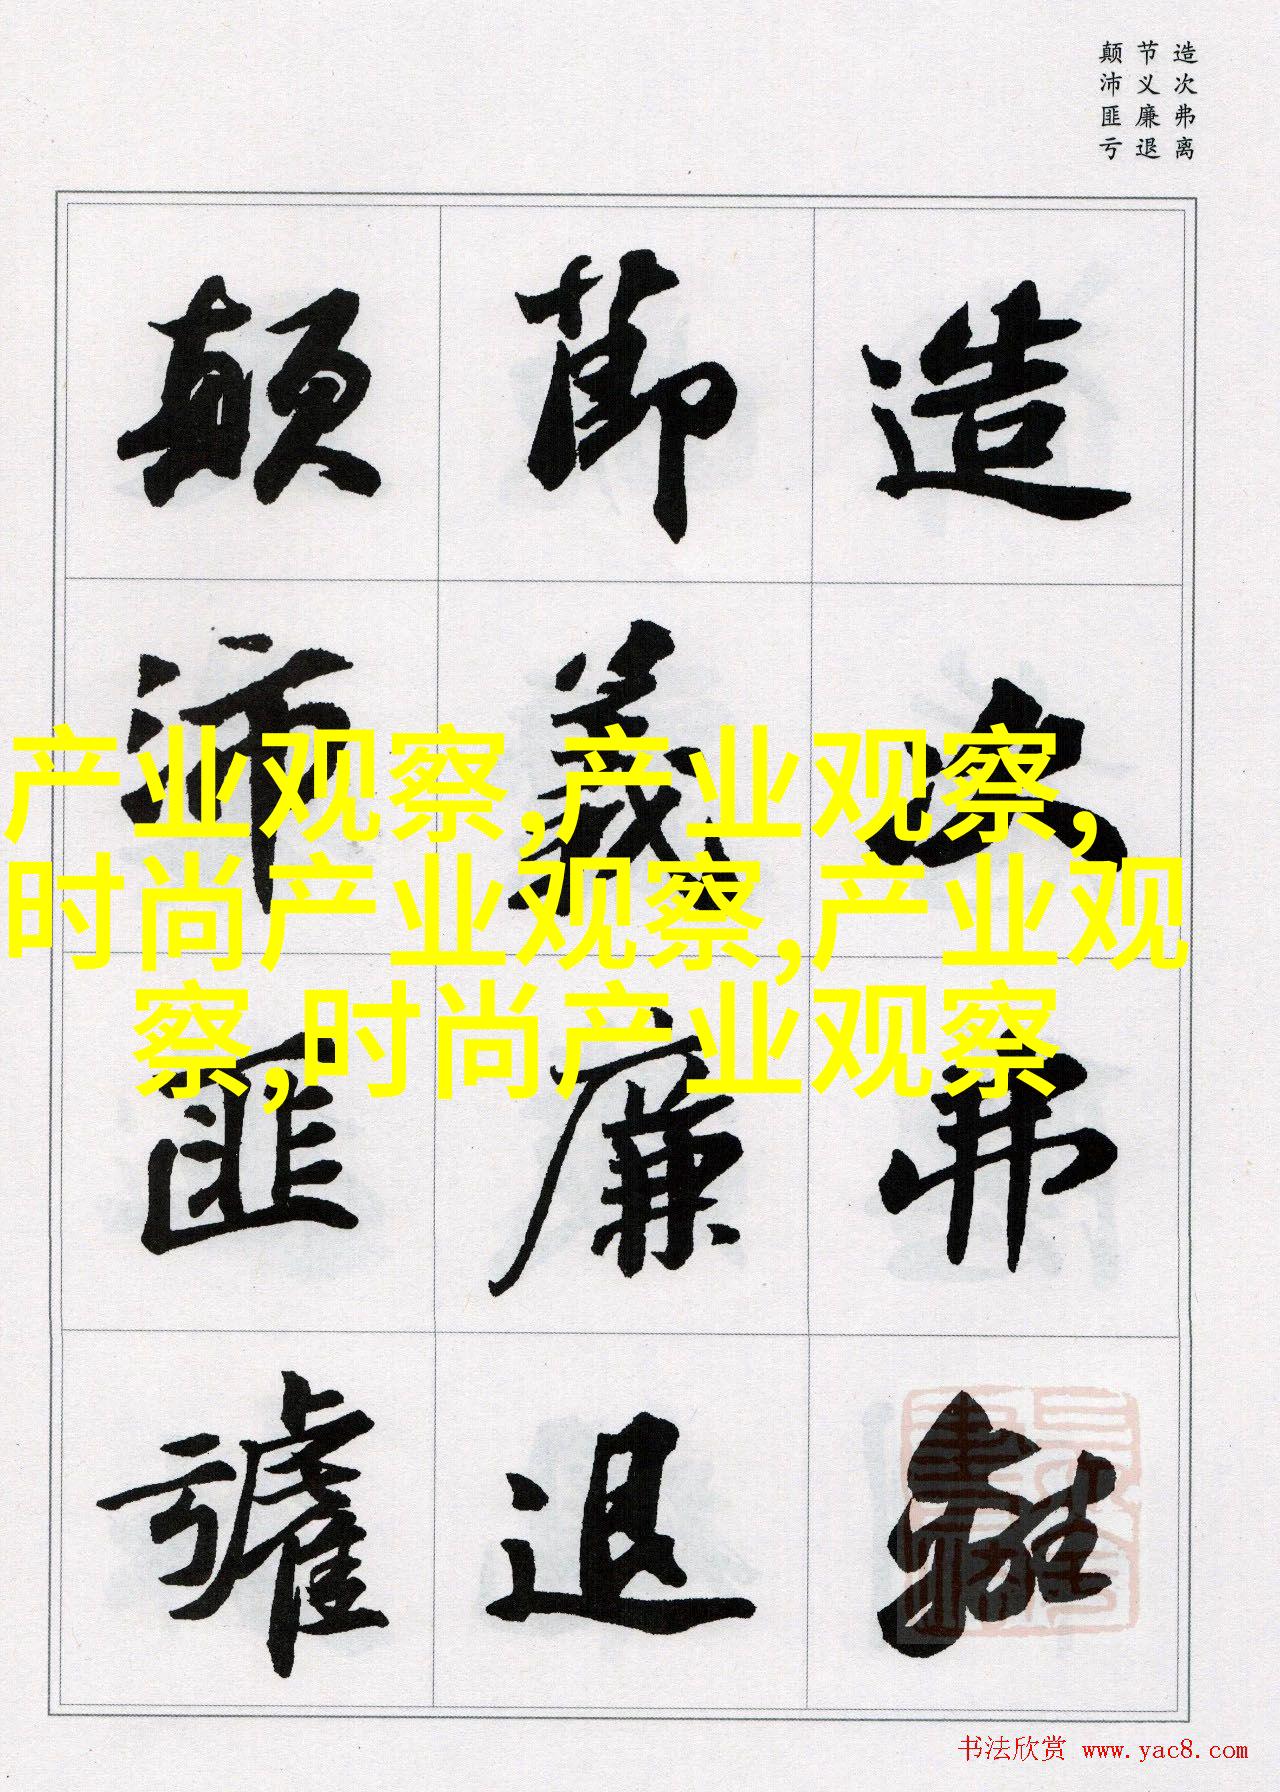 造次弗离
节义廉退
颠沛匪亏
造次弗離
節義廉退
顛沛匪虧
产业观察,产业观察,
时尚产业观察,产业观
察,时尚产业观察
书法欣赏 www.yac8.com